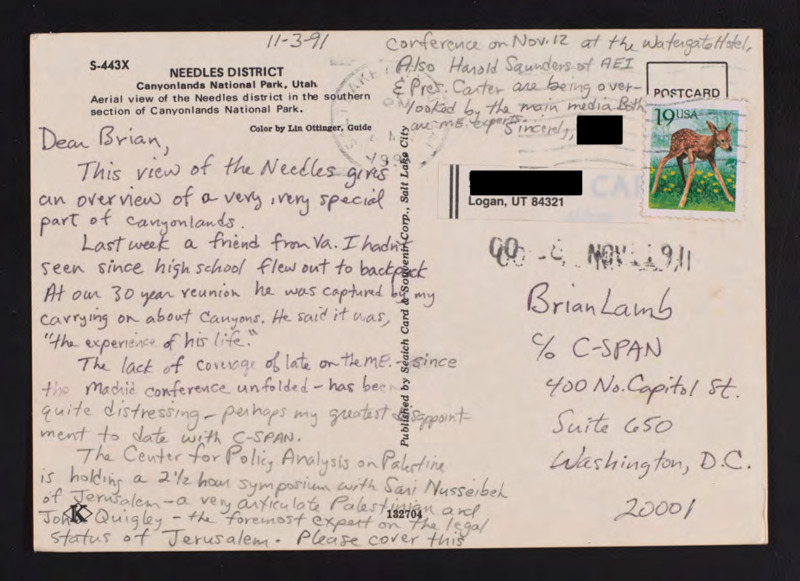 11-3-91
S-443X
NEEDLES DISTRICT
Canyonlands National Park, Utah.
Aerial view of the Needles district in the southern
section of Canyonlands National Park.
Color by Lin Ottinger, Guide
Dear Brian,
This view of the Needles gives
an overview of a very, very special
part of Canyonlands.
Last week a friend from Va. I hadn't
seen since high school flew out to backpack
At our 30 year reunion he was captured by my
carrying on about Canyons. He said it was,
"the experience of his life."
The lack of coverage of late on the M.E. - since
the Madrid conference unfolded - has been
quite distressing - perhaps my greatest disappoint-
ment to date with C-SPAN.
The Center for Policy Analysis on Palestine
is holding a 2½ hour symposium with Sari Nusseibeh
of Jerusalem - a very articulate Palestinian and
John Quigley - the foremost expert on the legal
status of Jerusalem. Please cover this
conference on Nov. 12 at the Watergate Hotel,
Also Harold Saunders of AEI
& Pres. Carter are being over-
looked by the main media. Both
are M.E. experts.
Sincerely,
Published by Search Card & Souvenir Corp., Salt Lake City
K
132704
POSTCARD
19 USA
Logan, UT 84321
NOV
Brian Lamb
c/o C-SPAN
400 No. Capitol St.
Suite 650
Washington, D.C.
20001